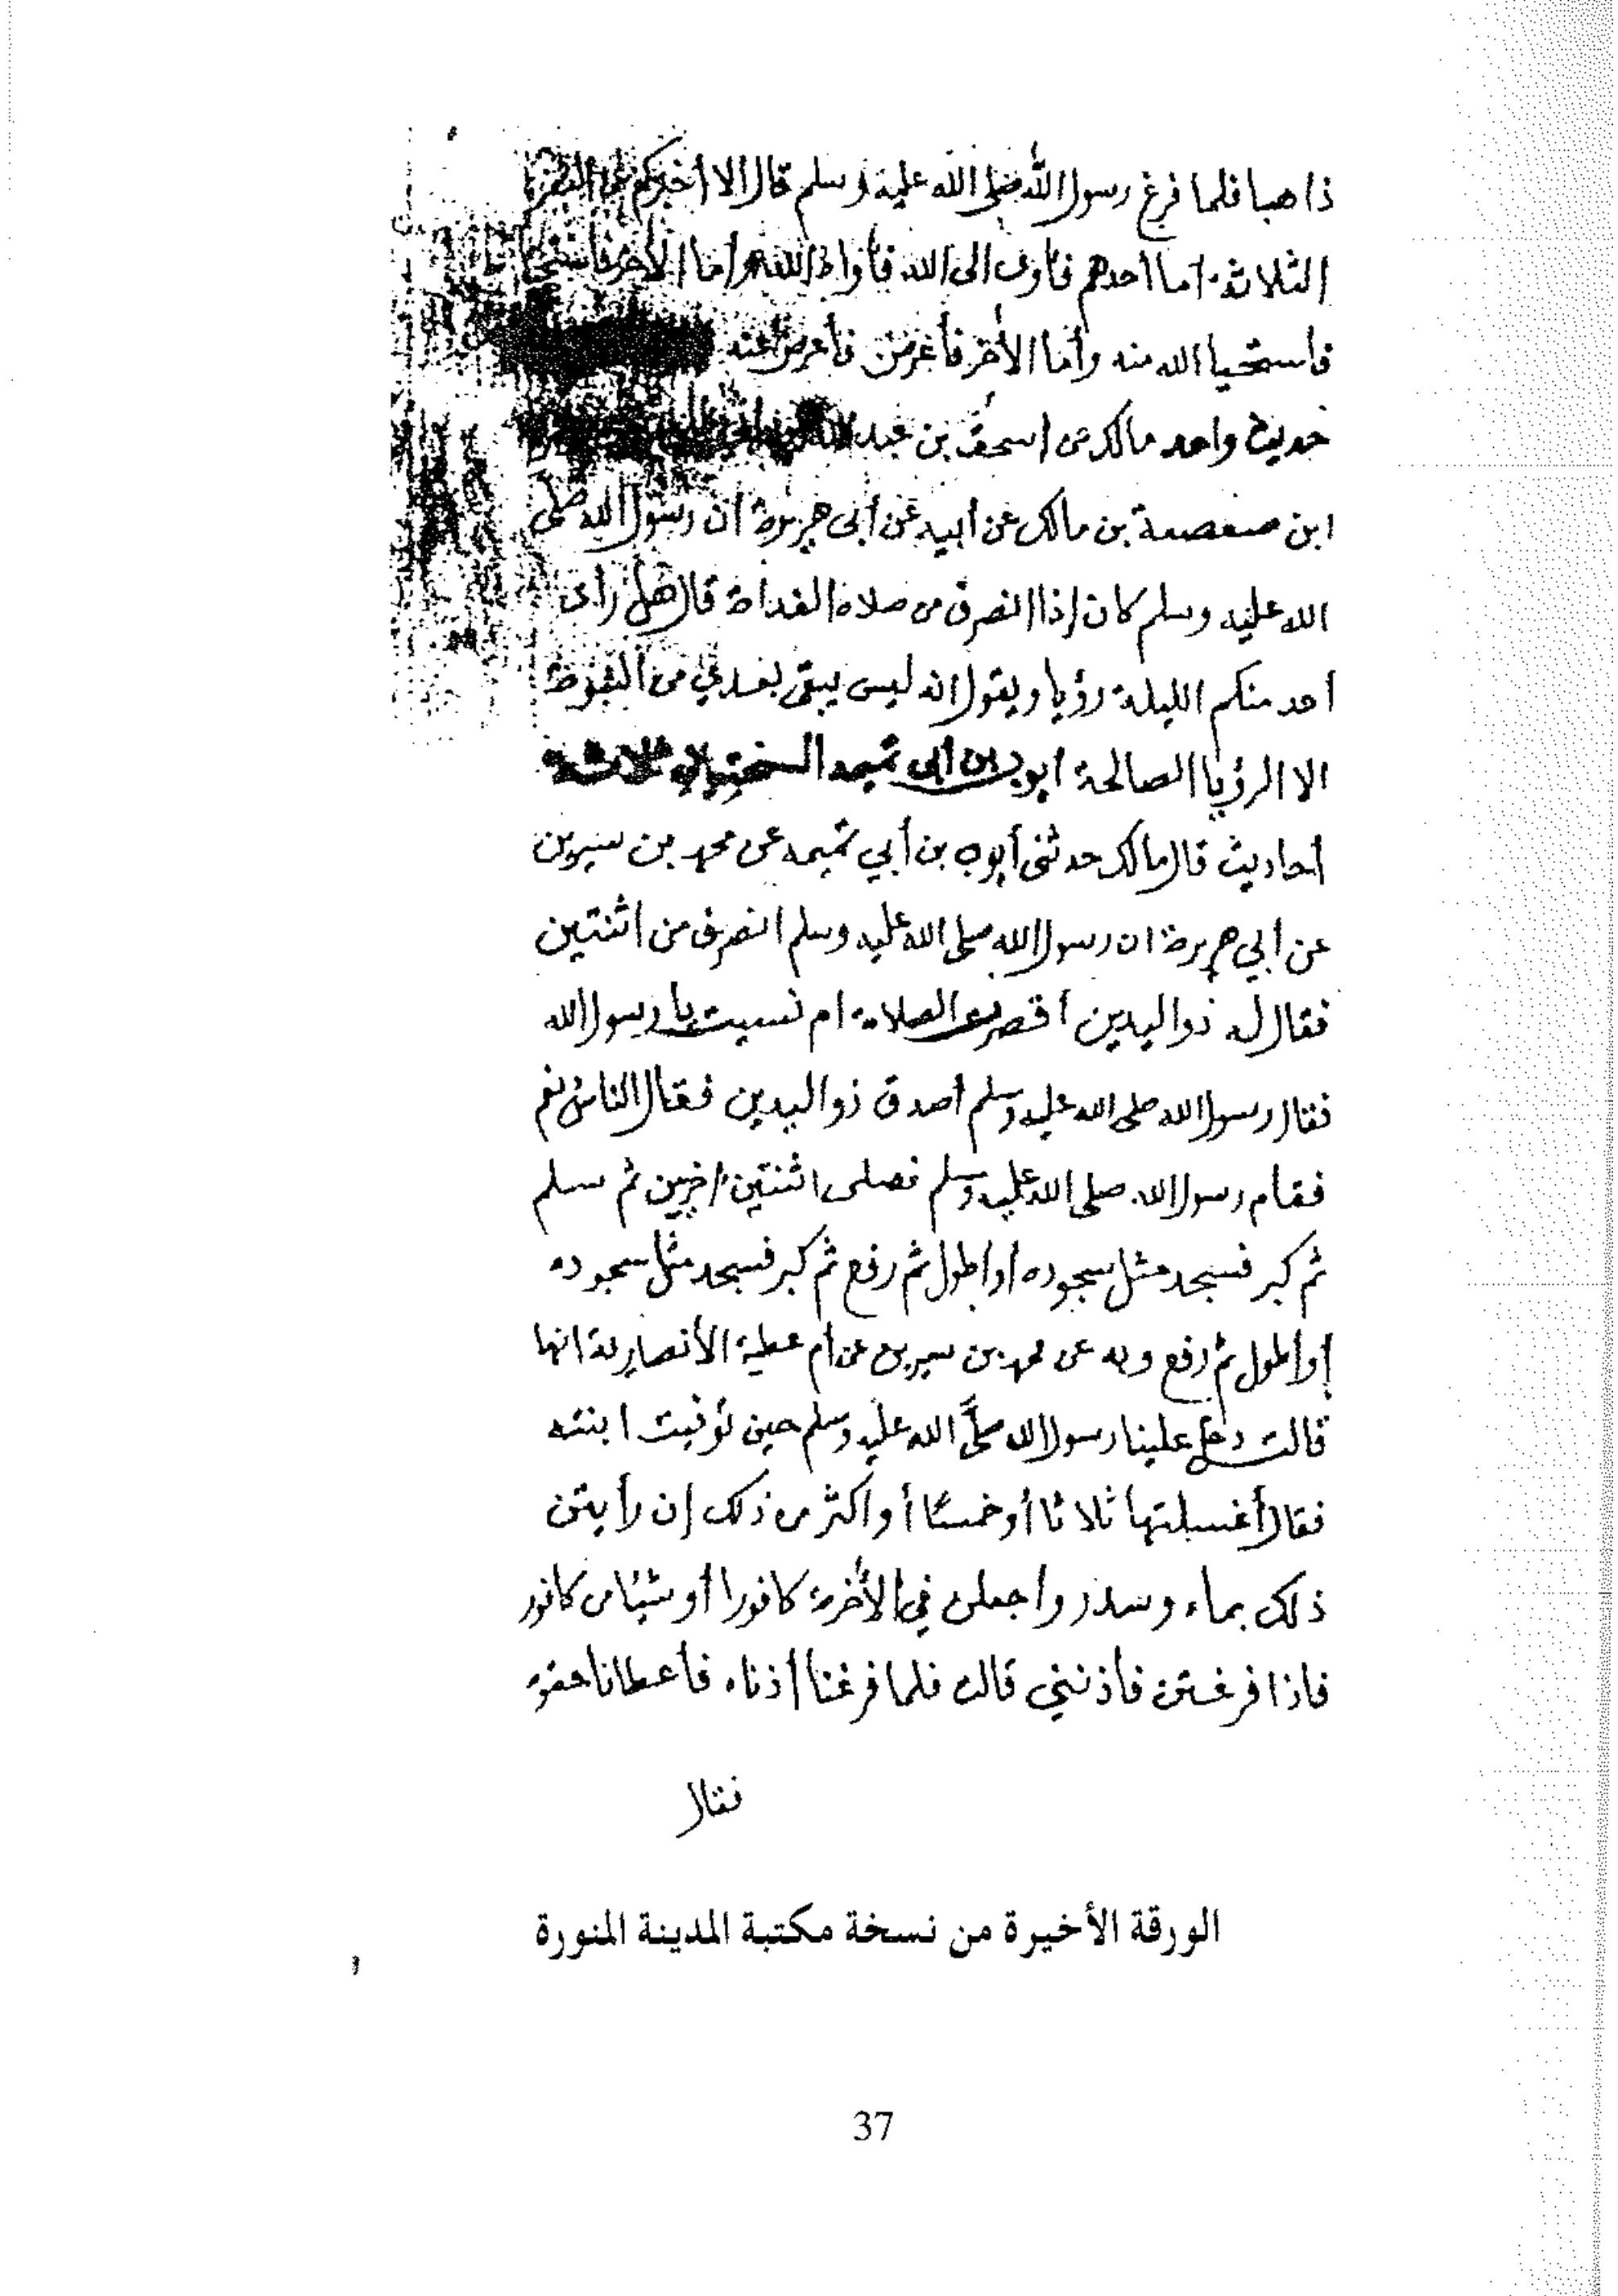 ذاهبا فلما فرغ رسول الله صلى الله عليه وسلم قال الا أخبركم عن النفر
الثلاثة اما أحدهم فأوى الى الله فأواه الله وأما الأخر فاستحيا
فأستحيا الله منه وأما الأخر فأعرض فأعرض الله عنه
حديث واحد مالك عن اسحق بن عبد الله
ابن صعصعة بن مالك عن أبيه عن أبى هريرة أن رسول الله صلى
الله عليه وسلم كان إذا انصرف من صلاة الغداة قال هل رأى
أحد منكم الليلة رؤيا ويقول انه ليس يبقى بعدي من النبوة
الا الرؤيا الصالحة أيوب بن أبى تميمه السختياني ثلاثة
أحاديث قال مالك حدثنى أيوب بن أبي تميمه عن محمد بن سيرين
عن أبي هريرة ان رسول الله صلى الله عليه وسلم انصرف من اثنتين
فقال له ذو اليدين أقصرت الصلاة ام نسيت يا رسول الله
فقال رسول الله صلى الله عليه وسلم أصدق ذو اليدين فقال الناس نعم
فقام رسول الله صلى الله عليه وسلم فصلى اثنتين اخريين ثم سلم
ثم كبر فسجد مثل سجوده أو اطول ثم رفع ثم كبر فسجد مثل سجوده
أو أطول ثم رفع وبه عن محمد بن سيرين عن أم عطية الأنصارية انها
قالت دخل علينا رسول الله صلى الله عليه وسلم حين توفيت ابنته
فقال أغسلنها ثلاثا أو خمسا أو اكثر من ذلك إن رأيتن
ذلك بماء وسدر واجعلن في الأخرة كافورا أو شيئا من كافور
فاذا فرغتن فأذنني قالت فلما فرغنا أذناه فأعطانا حقوه
فقال
الورقة الأخيرة من نسخة مكتبة المدينة المنورة
37